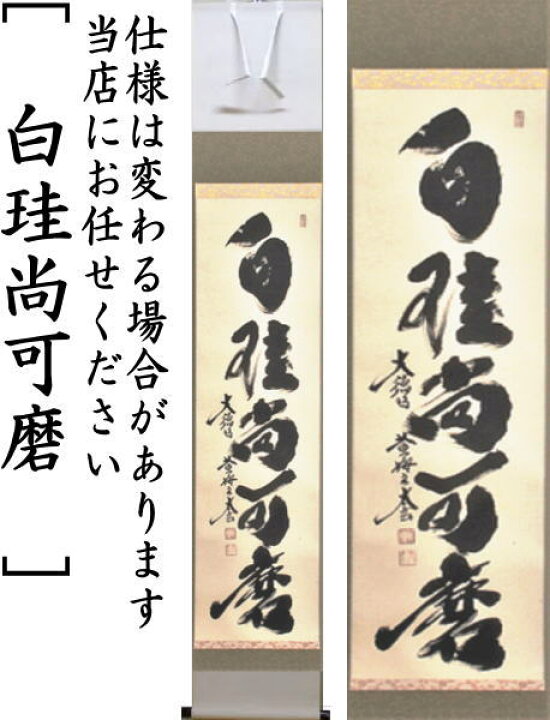 仕様は変わる場合があります
当店にお任せください
[白珪尚可磨]
白珪尚可磨
大徳
白珪尚可磨
大徳